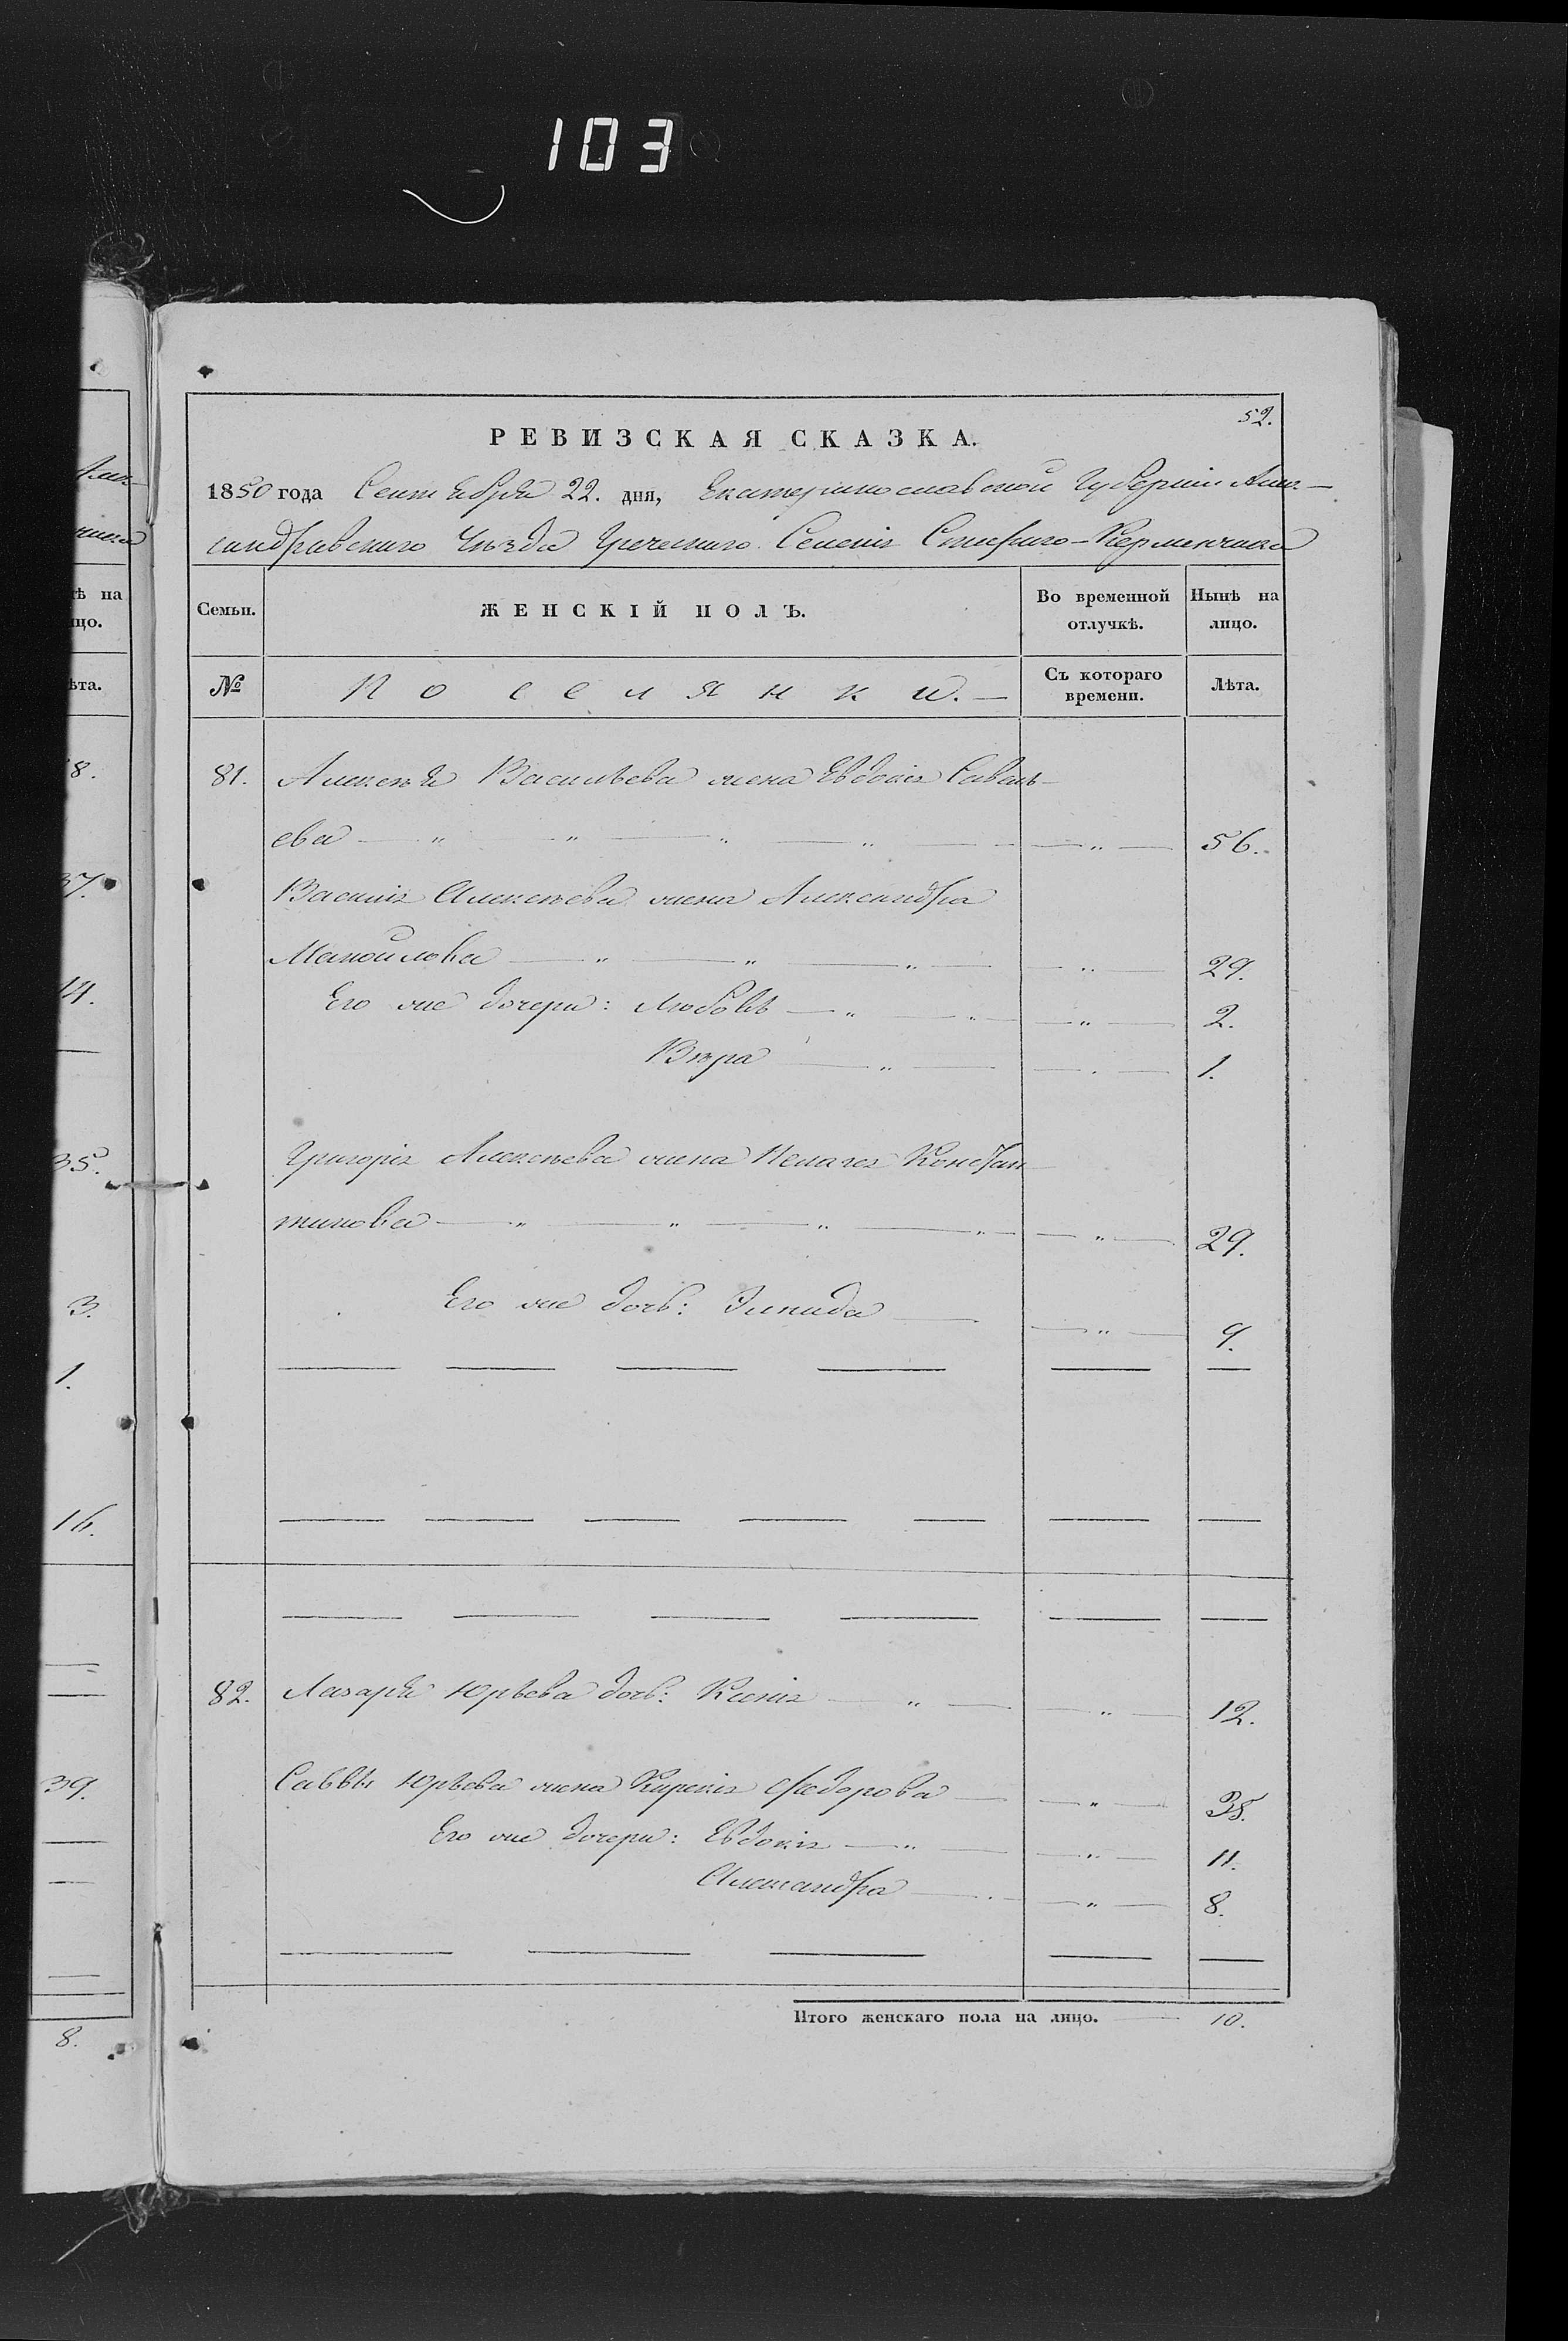 103
52.
РЕВИЗСКАЯ СКАЗКА.
1850 года Сентября 22. дня, Екатеринославской Губернiи Алек-
сандравскаго Уѣзда Греческаго Селенiя Стараго-Керменчика
Семьи. ЖЕНСКІЙ ПОЛЪ. Во временной отлучкѣ. Нынѣ на лицо.
№ Поселянки.— Съ котораго времени. Лѣта.
81. Алексѣя Васильева жена Евдокія Савель-
ева — " — " — " — " — — " — 56.
Василія Алексѣева жена Александра
Манойлова — " — " — " — — " — 29.
Его же дочери: Любовь — " — " — — " — 2.
Вѣра — " — — " — 1.
Григорія Алексѣева жена Пелагея Констан-
тинова — " — " — " — " — — " — 29.
Его же дочь: Зинида — — " — 9.
82. Лазаря Юрьева дочь: Ксенія — " — — " — 12.
Саввы Юрьева жена Кирекія Федорова — — " — 38.
Его же дочери: Евдокія — " — — " — 11.
Александра — — " — 8.
Итого женскаго пола на лицо. — 10.
ѣ на
цо.
ѣта.
8.
37.
14.
35.
3.
1.
16.
39.
8.